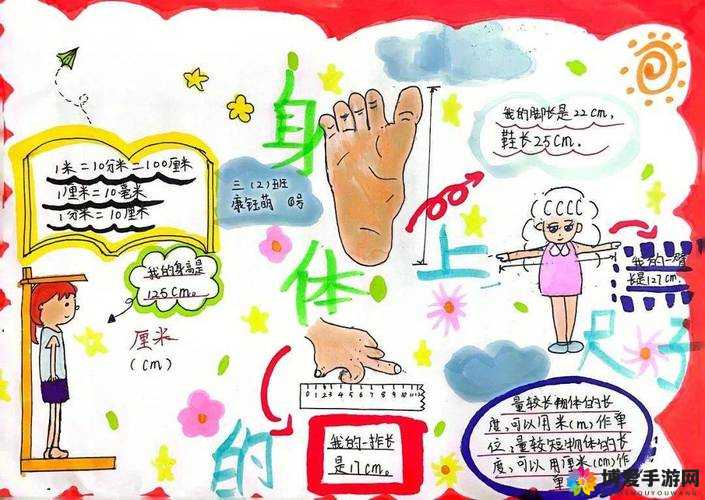 身体上的尺子
1米=10分米=100厘米
1厘米=10毫米
1分米=10厘米
三(2)班
康钰萌
号
我的脚长是22cm,
鞋长25cm.
我的身高是
125cm。
厘米
(cm)
我的一臂
长是127cm
0 1 2 3 4 5 6 7 8 9 10
我的一拃长
是17cm。
量较长物体的长
度,可以用米(m)作单
位;量较短物体的长
度,可以用厘米(cm)作
单
博爱手游网